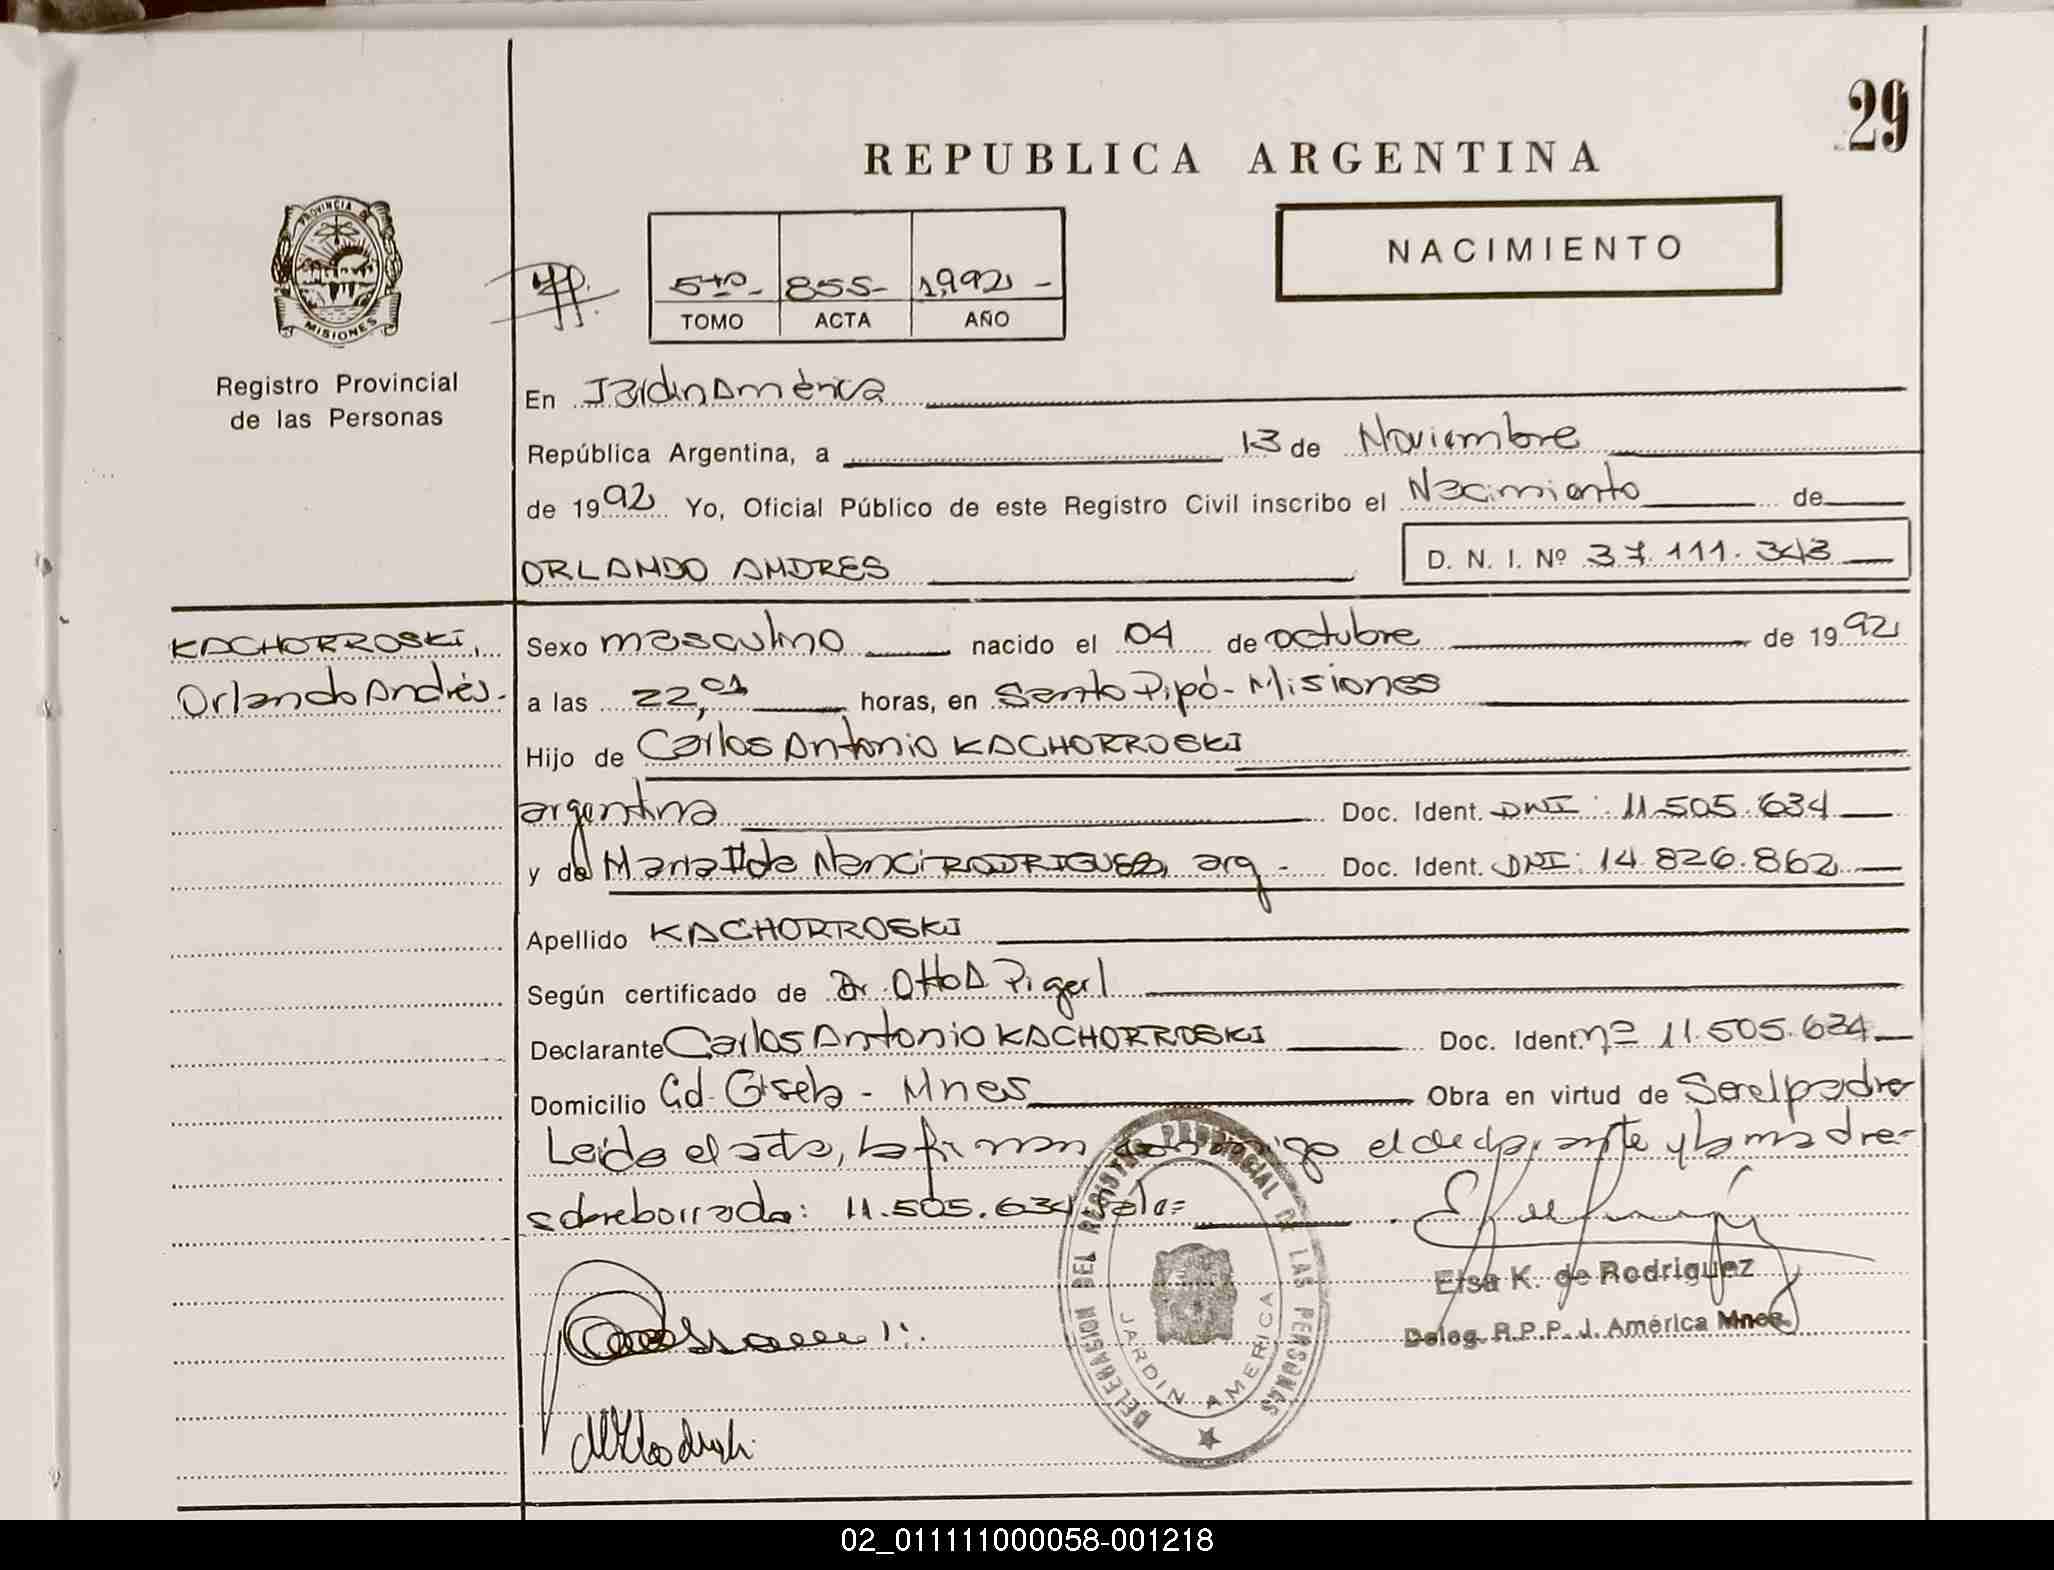 29
REPUBLICA ARGENTINA
PROVINCIA DE
MISIONES
NACIMIENTO
5to - 855- 1992 -
TOMO ACTA AÑO
Registro Provincial
de las Personas
En Jardin América
República Argentina, a 13 de Noviembre
de 1992 Yo, Oficial Público de este Registro Civil inscribo el Nacimiento de
ORLANDO ANDRES D. N. I. Nº 37.111.343
KACHORROSKI,
Orlando Andrés.
Sexo masculino nacido el 04 de octubre de 1992
a las 22,01 horas, en Santo Pipó - Misiones
Hijo de Carlos Antonio KACHORROSKI
argentina Doc. Ident. DNI: 11.505.634
y de Maria Ilda Nanci RODRIGUEZ, arg - Doc. Ident. DNI: 14.826.862
Apellido KACHORROSKI
Según certificado de Dr. Otto A Pigerl
Declarante Carlos Antonio KACHORROSKI Doc. Ident. nº 11.505.634
Domicilio Gisela - Mnes Obra en virtud de Ser el padre
Leida el acta, la firman conmigo el declarante y la madre-
sobreborrado: 11.505.634 vale=
DELEGACION DEL REGISTRO PROVINCIAL DE LAS PERSONAS
JARDIN AMERICA
Elsa K. de Rodriguez
Deleg. R.P.P. J. América Mnes.
02_011111000058-001218